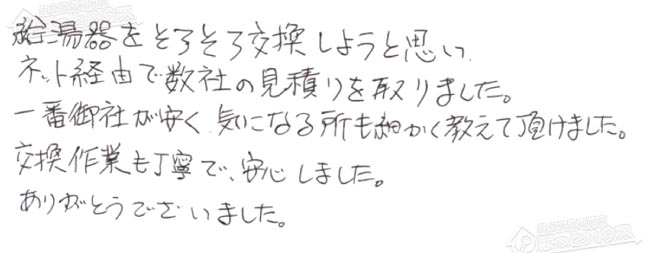 給湯器をそろそろ交換しようと思い
ネット経由で数社の見積りを取りました。
一番御社が安く、気になる所も細かく教えて頂けました。
交換作業も丁寧で、安心しました。
ありがとうございました。